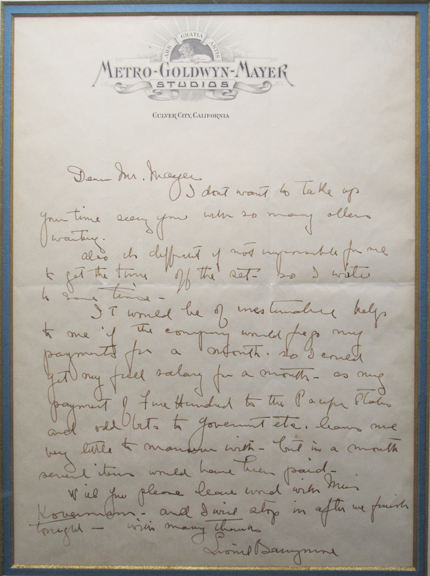 ARS GRATIA ARTIS
METRO-GOLDWYN-MAYER
STUDIOS
CULVER CITY, CALIFORNIA
Dear Mr. Mayer
I dont want to take up
your time seeing you with so many others
waiting.
Also its difficult if not impossible for me
to get the time off the set - so I write
to save time -
It would be of inestimable help
to me if the company would pay my
payments for a month. so I could
get my full salary for a month - as my
payment of Five Hundred to the Pacific States
and odd lots to Government etc. leaves me
very little to maneuver with - but in a month
several items would have been paid -
Will you please leave word with Miss
- and I will stop in after we finish
tonight - with many thanks
Lionel Barrymore